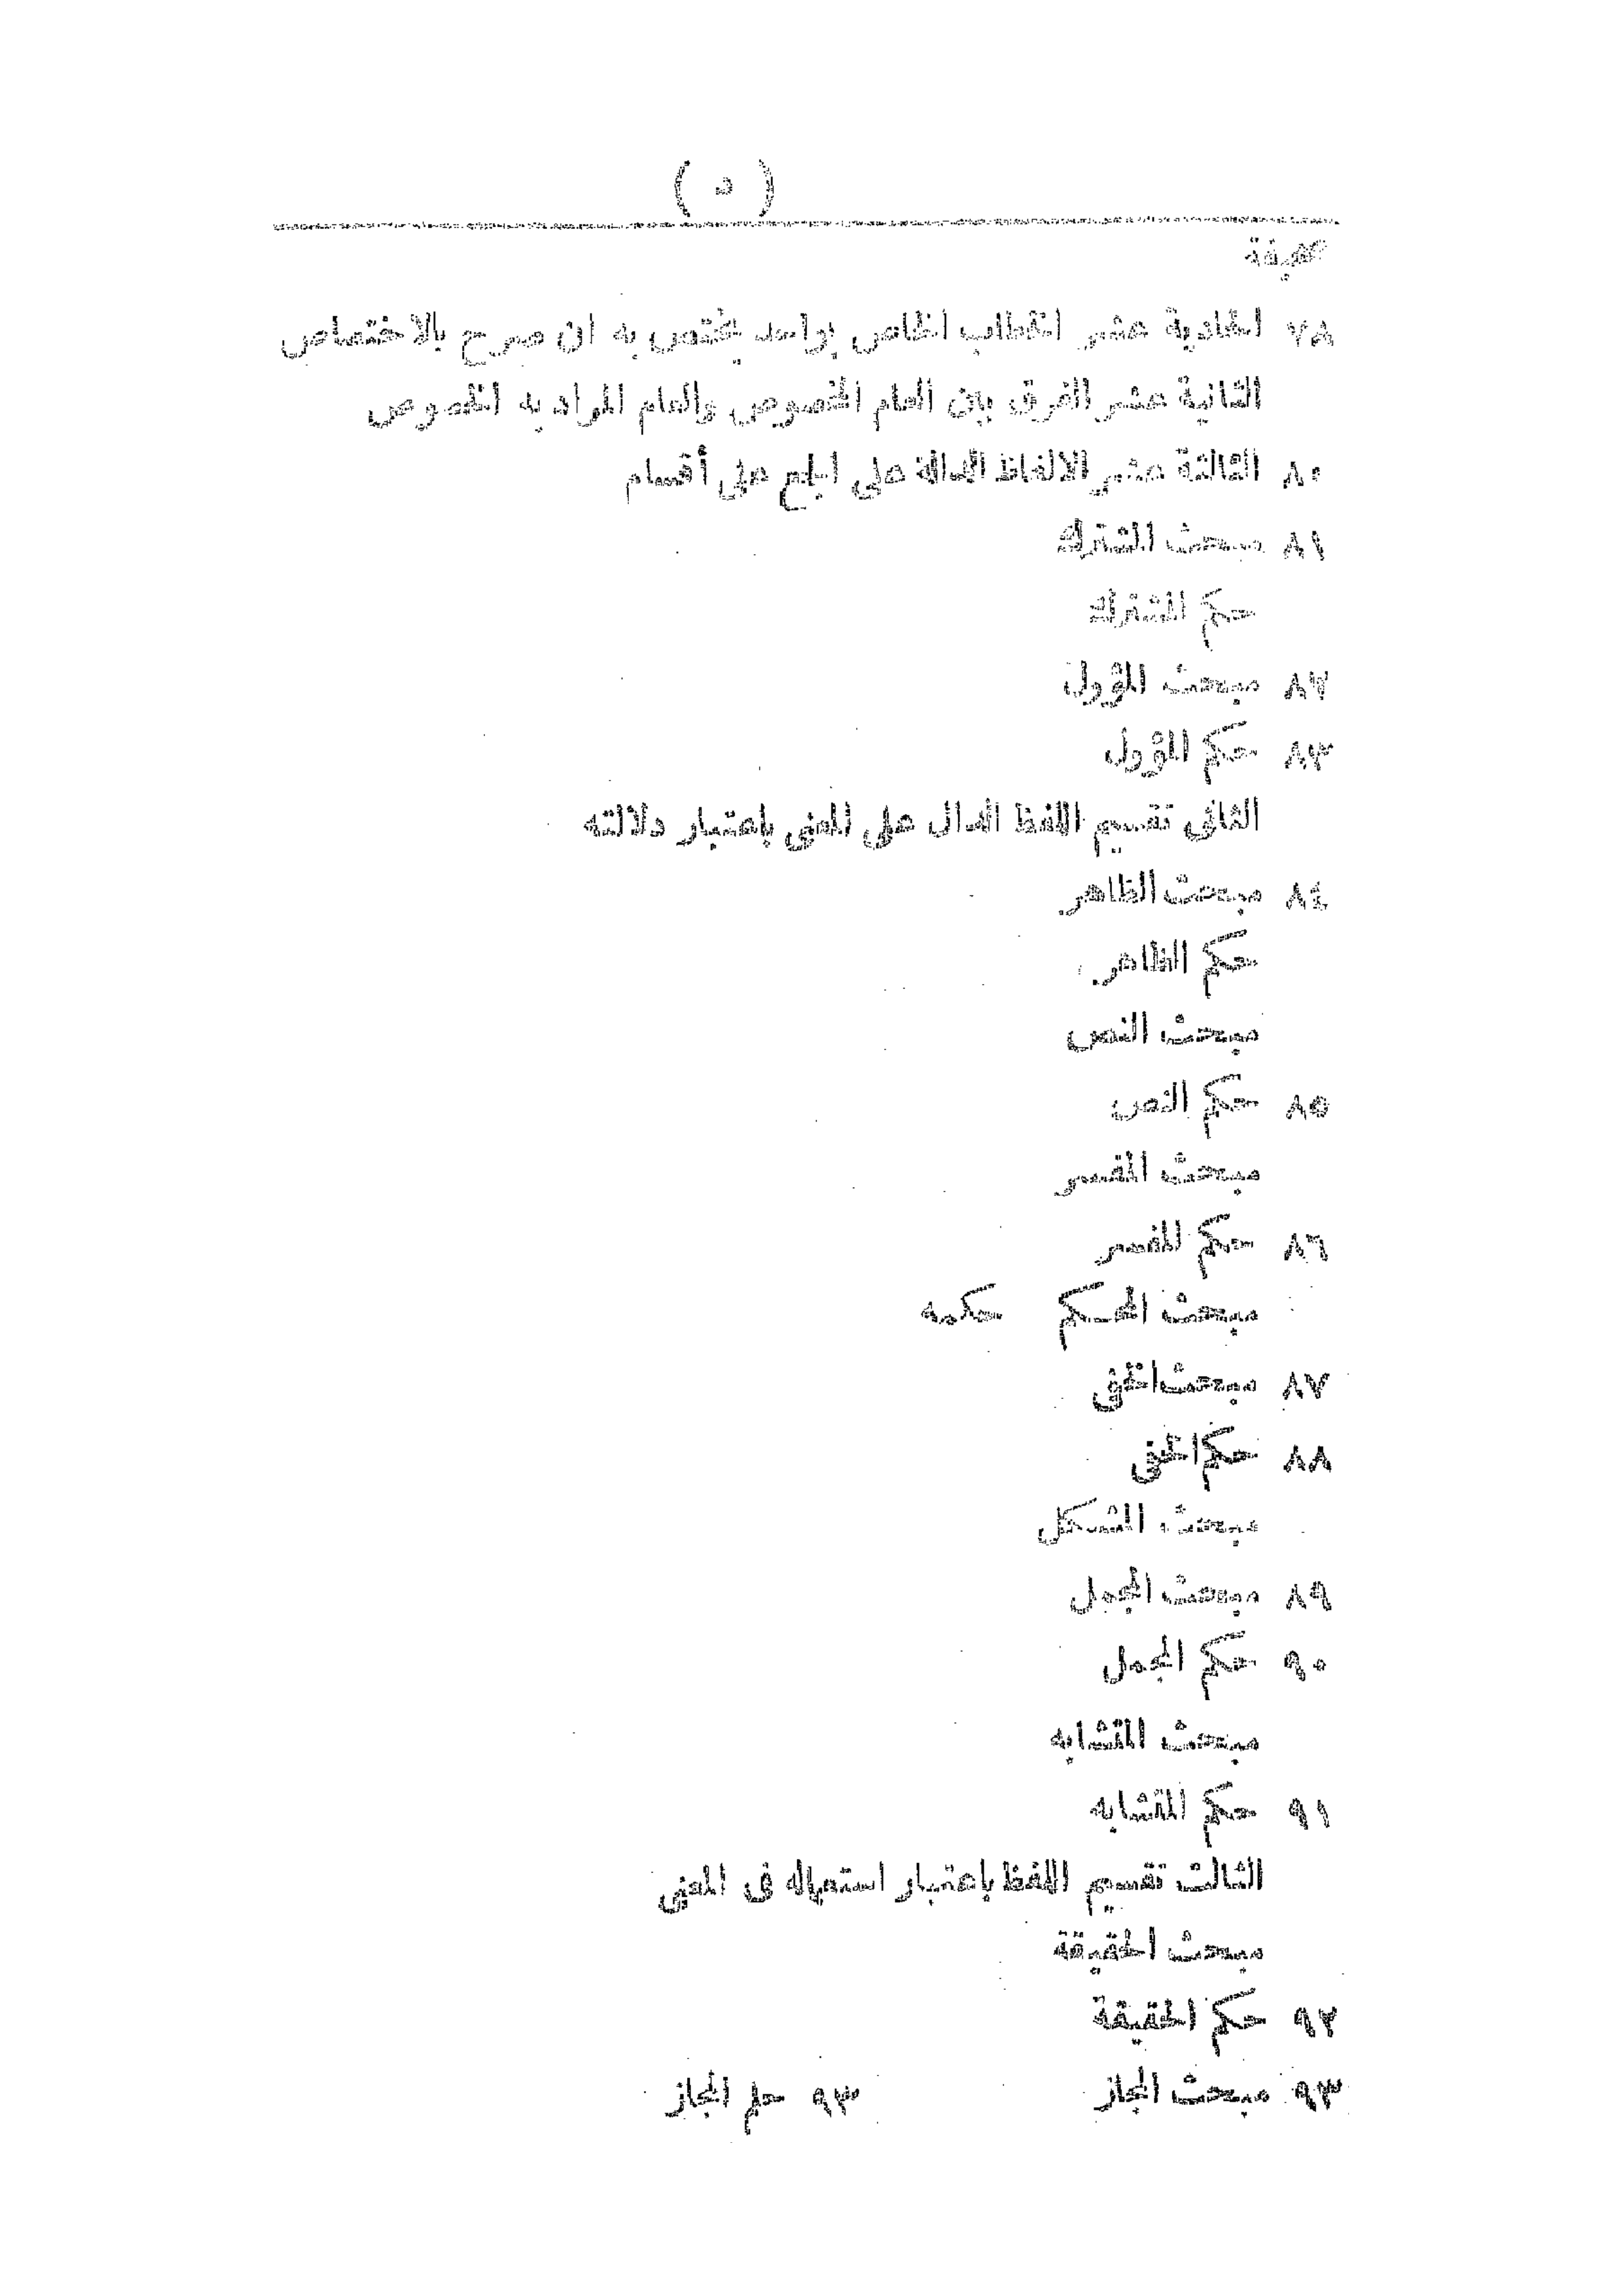 ( ٥ )
صحيفة
٧٨ الحادية عشر الخطاب الخاص بواحد يختص به ان صرح بالاختصاص
الثانية عشر الفرق بين العام المخصوص والعام المراد به الخصوص
٨٠ الثالثة عشر الالفاظ الدالة على الجمع على أقسام
٨١ مبحث المشترك
حكم المشترك
٨٢ مبحث المؤول
٨٣ حكم المؤول
الثانى تقسيم اللفظ الدال على المعنى باعتبار دلالته
٨٤ مبحث الظاهر
حكم الظاهر
مبحث النص
٨٥ حكم النص
مبحث المفسر
٨٦ حكم المفسر
مبحث المحكم حكمه
٨٧ مبحث الخفى
٨٨ حكم الخفى
مبحث المشكل
٨٩ مبحث المجمل
٩٠ حكم المجمل
مبحث المتشابه
٩١ حكم المتشابه
الثالث تقسيم اللفظ باعتبار استعماله فى المعنى
مبحث الحقيقة
٩٢ حكم الحقيقة
٩٣ مبحث المجاز ٩٣ حكم المجاز